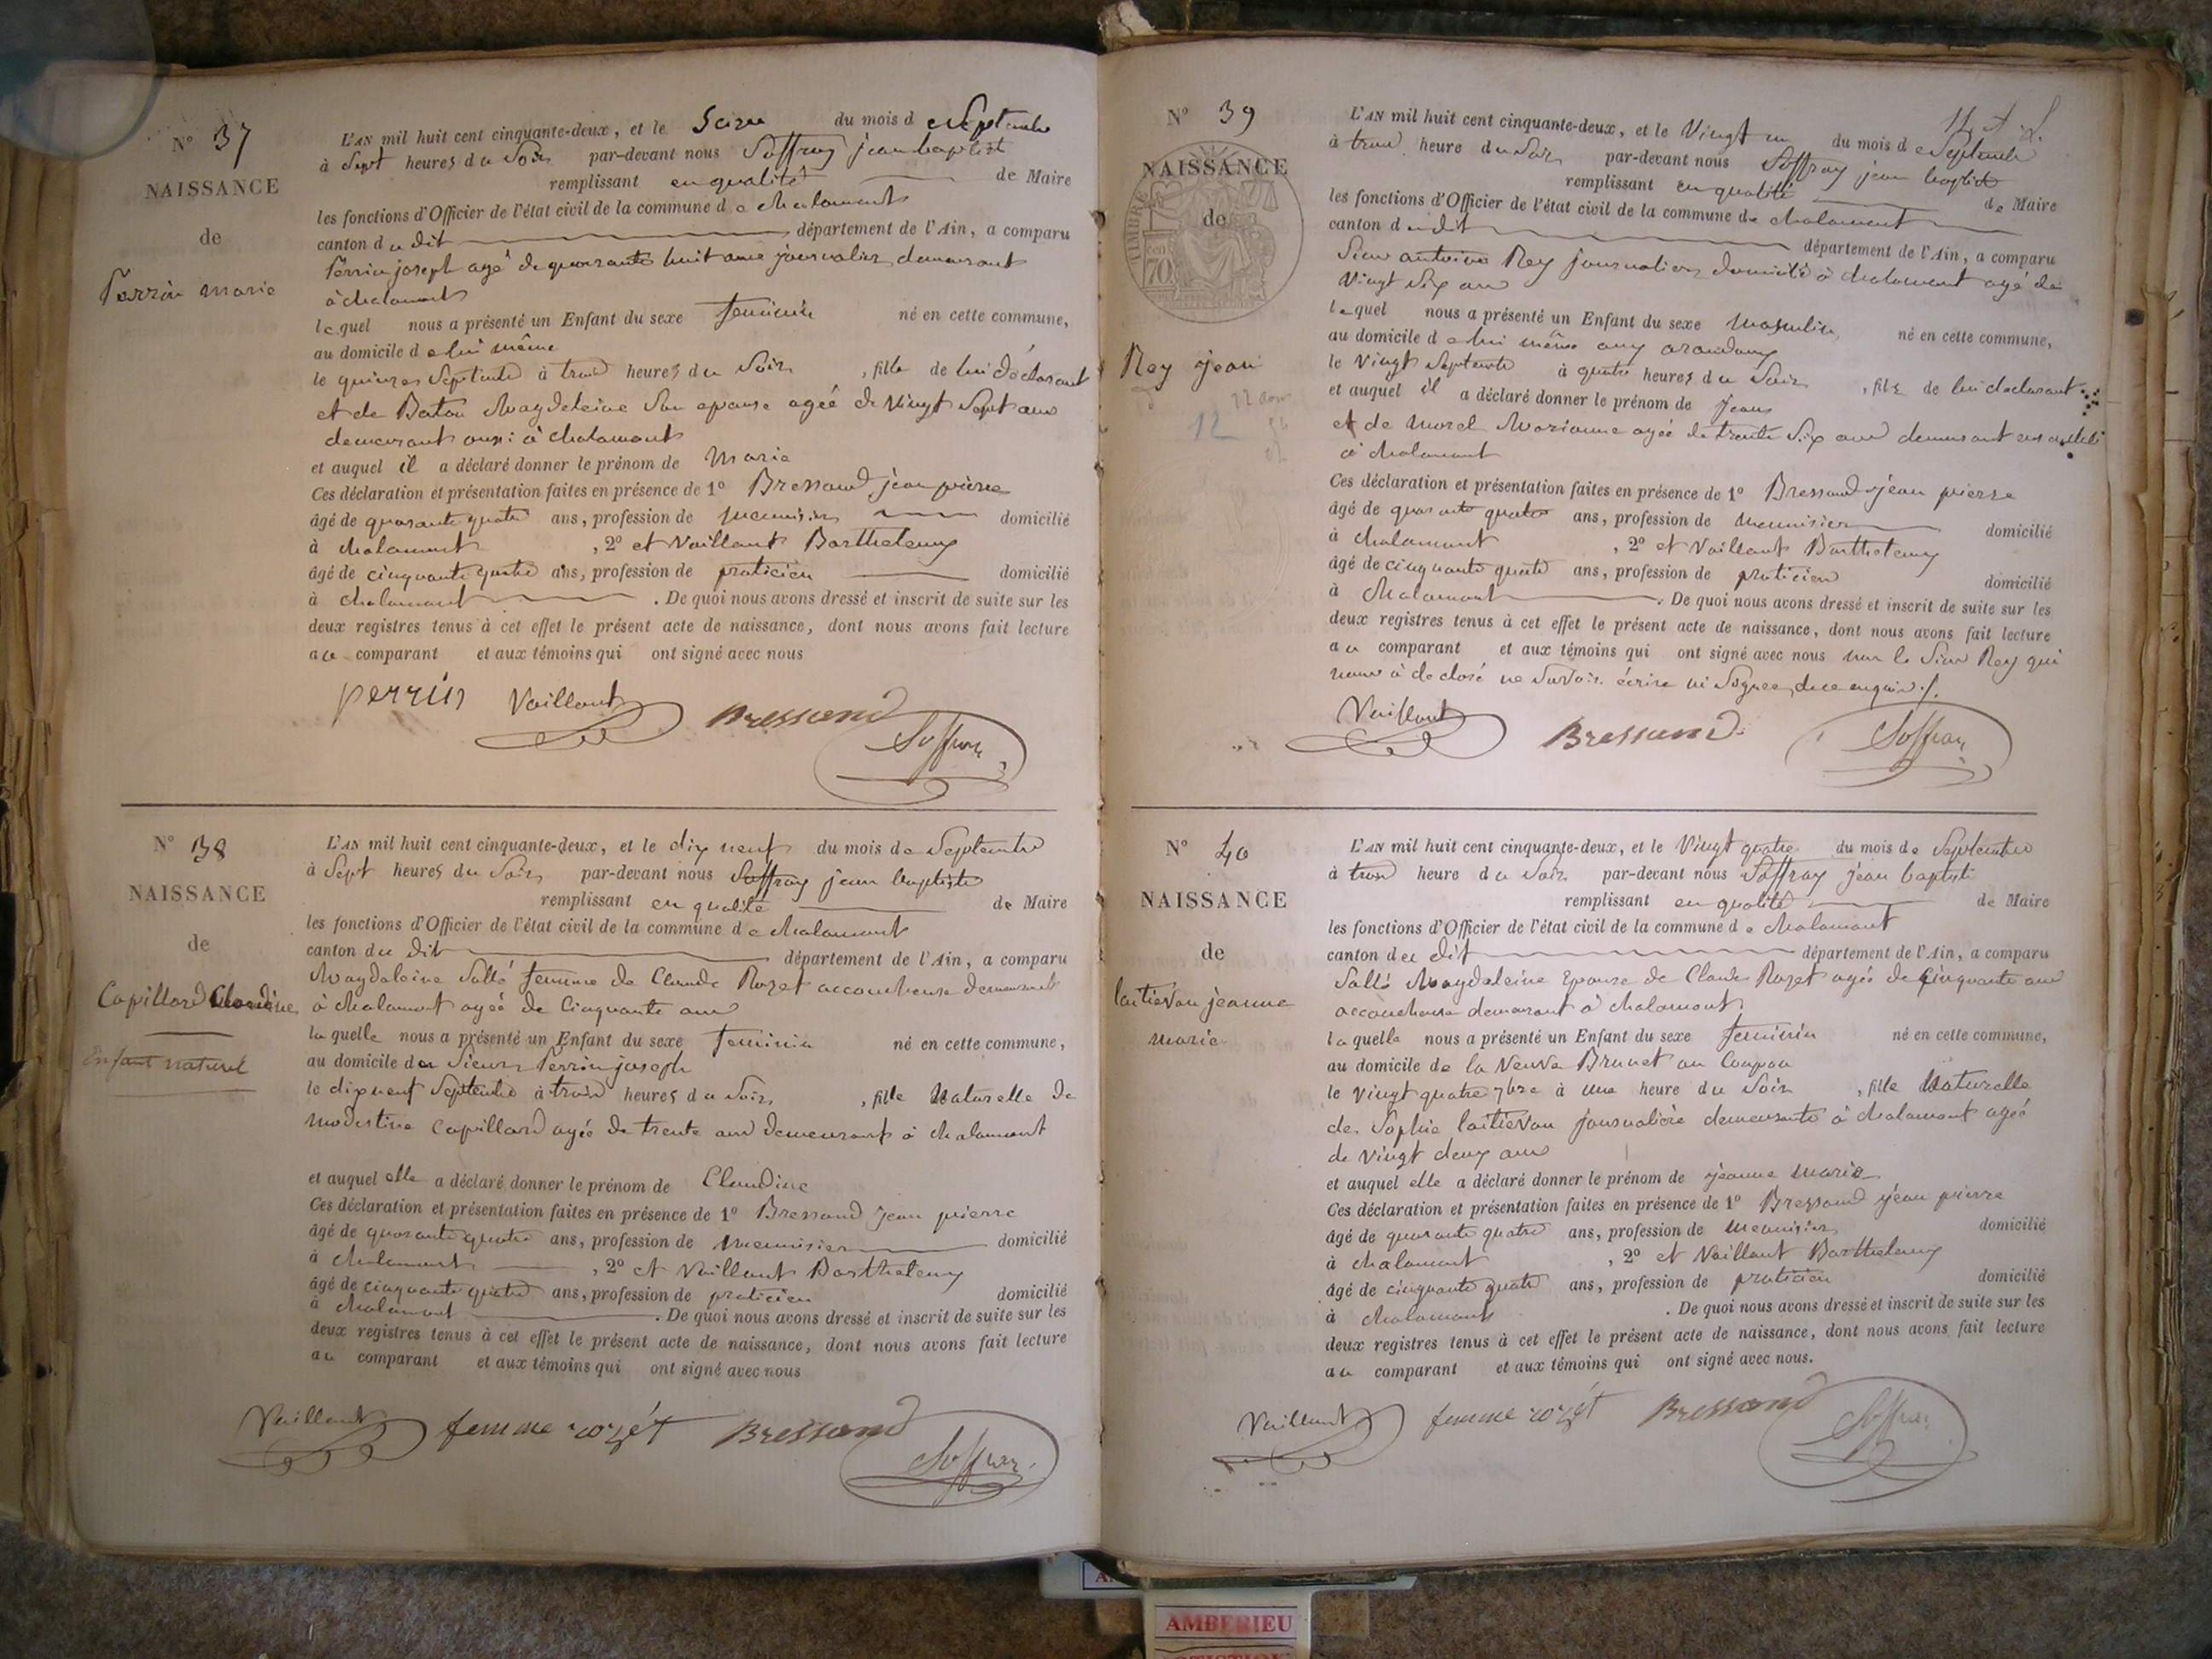 N° 37
NAISSANCE
de
Perrin marie
L'AN mil huit cent cinquante-deux, et le Seize du mois d e Septembre
à Sept heures du Soir par-devant nous Soffray jean baptiste
remplissant en qualité de Maire
les fonctions d'Officier de l'état civil de la commune d e chalamont
canton du dit département de l'Ain, a comparu
Perrin joseph agé de quarante huit ans journalier demeurant
à chalamont
lequel nous a présenté un Enfant du sexe feminin né en cette commune,
au domicile d e lui même
le quinze Septembre à trois heures du Soir , fille de lui déclarant
et de Baton Magdeleine Son epouse agée de Vingt Sept ans
demeurant aussi à chalamont
et auquel il a déclaré donner le prénom de Marie
Ces déclaration et présentation faites en présence de 1° Bressand jean pierre
âgé de quarante quatre ans, profession de menuisier domicilié
à chalamont , 2° et Vaillant Barthelemy
âgé de cinquante quatre ans, profession de praticien domicilié
à chalamont . De quoi nous avons dressé et inscrit de suite sur les
deux registres tenus à cet effet le présent acte de naissance, dont nous avons fait lecture
au comparant et aux témoins qui ont signé avec nous
perrin Vaillant Bressand Soffray
N° 38
NAISSANCE
de
Capillard Claudine
Enfant naturel
L'AN mil huit cent cinquante-deux, et le dix neuf du mois de Septembre
à Sept heures du Soir par-devant nous Soffray jean baptiste
remplissant en qualité de Maire
les fonctions d'Officier de l'état civil de la commune d e chalamont
canton du dit département de l'Ain, a comparu
Magdeleine Sallé femme de Claude Rozet accoucheuse demeurant
à chalamont agée de Cinquante ans
laquelle nous a présenté un Enfant du sexe feminin né en cette commune,
au domicile du Sieur Perrin joseph
le dix neuf Septembre à trois heures du Soir , fille Naturelle de
modestine Capillard agée de trente ans demeurant à chalamont
et auquel elle a déclaré donner le prénom de Claudine
Ces déclaration et présentation faites en présence de 1° Bressand jean pierre
âgé de quarante quatre ans, profession de menuisier domicilié
à chalamont , 2° et Vaillant Barthelemy
âgé de cinquante quatre ans, profession de praticien domicilié
à chalamont . De quoi nous avons dressé et inscrit de suite sur les
deux registres tenus à cet effet le présent acte de naissance, dont nous avons fait lecture
au comparant et aux témoins qui ont signé avec nous
Vaillant femme rozét Bressand Soffray
N° 39
NAISSANCE
de
TIMBRE
70
Rey jean
12
L'AN mil huit cent cinquante-deux, et le Vingt un du mois d e Septembre
à trois heure du Soir par-devant nous Soffray jean baptiste
remplissant en qualité de Maire
les fonctions d'Officier de l'état civil de la commune de chalamont
canton du dit département de l'Ain, a comparu
Sieur antoine Rey journalier domicilié à chalamont agé de
Vingt Six ans
lequel nous a présenté un Enfant du sexe masculin né en cette commune,
au domicile d e lui même aux
le Vingt Septembre à quatre heures du Soir , fils de lui declarant
et auquel il a déclaré donner le prénom de Jean
et de morel Marianne agée de trente Six ans demeurant
à chalamont
Ces déclaration et présentation faites en présence de 1° Bressand jean pierre
âgé de quarante quatre ans, profession de menuisier domicilié
à chalamont , 2° et Vaillant Barthelemy
âgé de cinquante quatre ans, profession de praticien domicilié
à chalamont . De quoi nous avons dressé et inscrit de suite sur les
deux registres tenus à cet effet le présent acte de naissance, dont nous avons fait lecture
au comparant et aux témoins qui ont signé avec nous non le Sieur Rey qui
nous à declaré ne Savoir écrire ni Signer, de ce enquis ./.
Vaillant Bressand Soffray
N° 40
NAISSANCE
de
laitievan jeanne
marie
L'AN mil huit cent cinquante-deux, et le Vingt quatre du mois de Septembre
à trois heure du Soir par-devant nous Soffray jean baptiste
remplissant en qualité de Maire
les fonctions d'Officier de l'état civil de la commune d e chalamont
canton du dit département de l'Ain, a comparu
Sallé Magdeleine Epouse de Claude Rozet agée de Cinquante ans
accoucheuse demeurant à chalamont
laquelle nous a présenté un Enfant du sexe feminin né en cette commune,
au domicile de la Veuve Brunet au Coupou
le Vingt quatre 7bre à une heure du Soir , fille Naturelle
de Sophie laitievan journalière demeurante à chalamont agée
de Vingt deux ans
et auquel elle a déclaré donner le prénom de jeanne marie
Ces déclaration et présentation faites en présence de 1° Bressand jean pierre
âgé de quarante quatre ans, profession de menuisier domicilié
à chalamont , 2° et Vaillant Barthelemy
âgé de cinquante quatre ans, profession de praticien domicilié
à chalamont . De quoi nous avons dressé et inscrit de suite sur les
deux registres tenus à cet effet le présent acte de naissance, dont nous avons fait lecture
au comparant et aux témoins qui ont signé avec nous.
Vaillant femme rozét Bressand Soffray
AMBERIEU